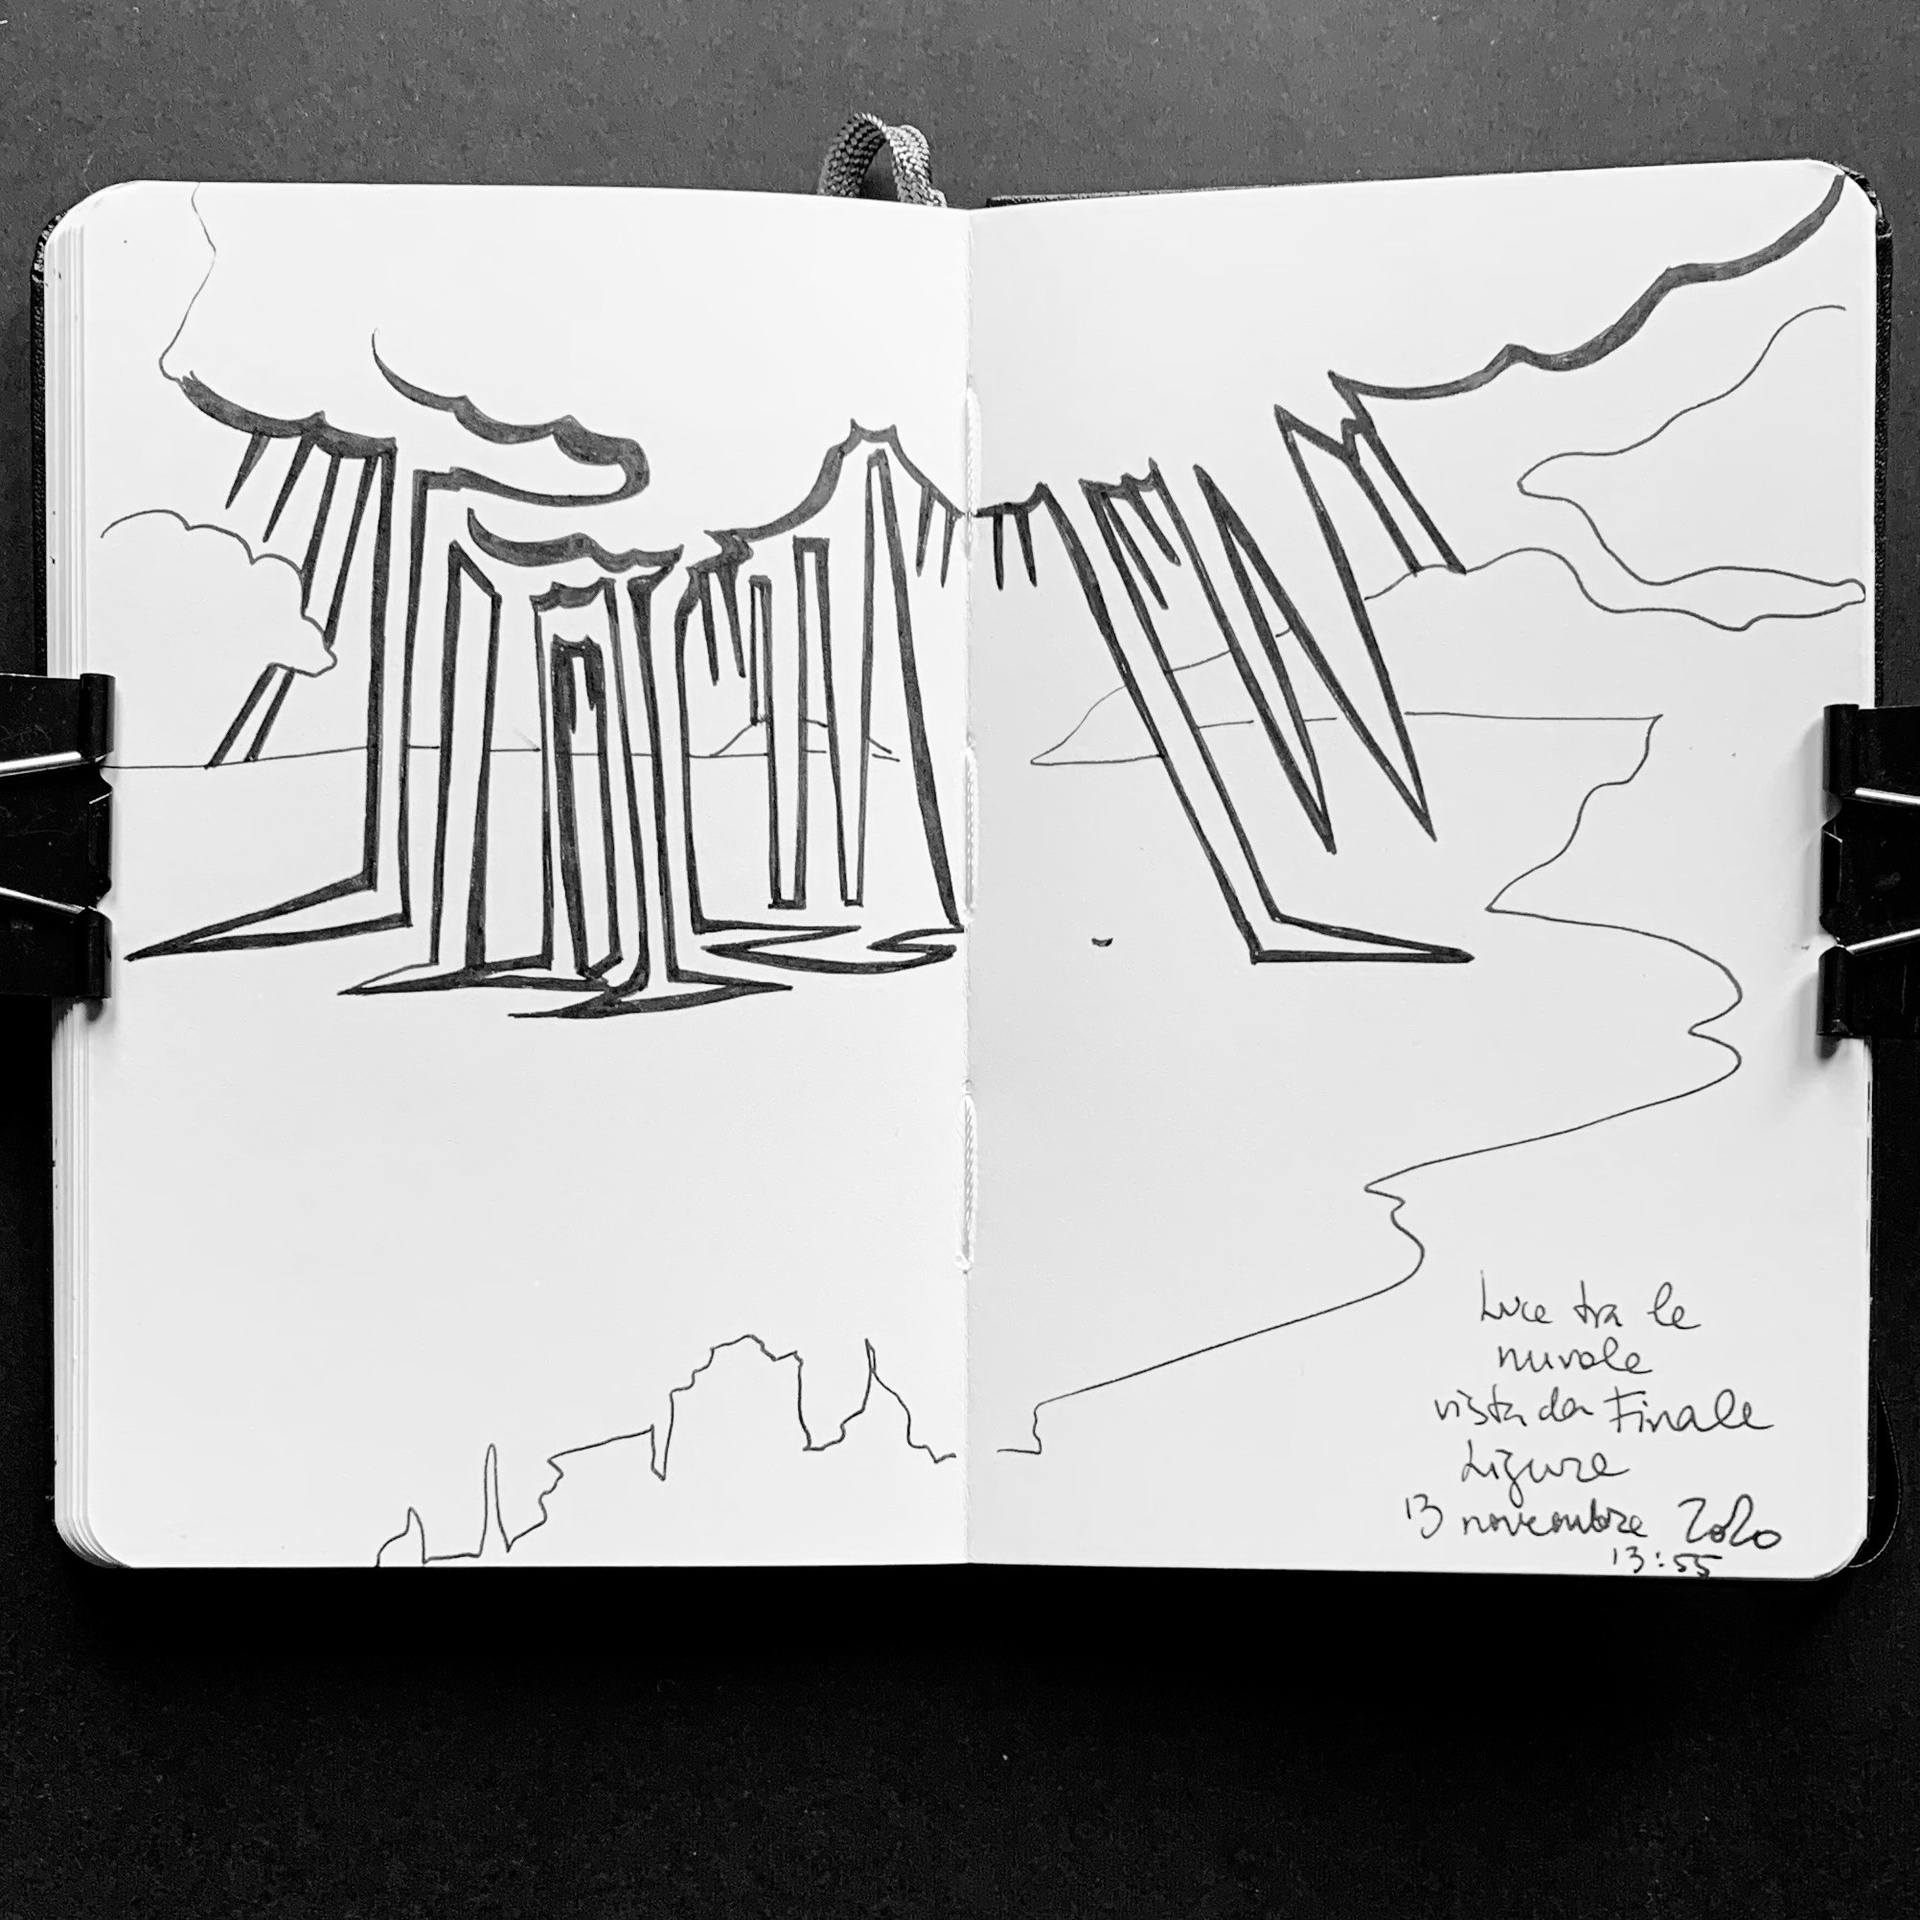 Luce tra le
nuvole
vista da Finale
Ligure
13 novembre 2020
13:55